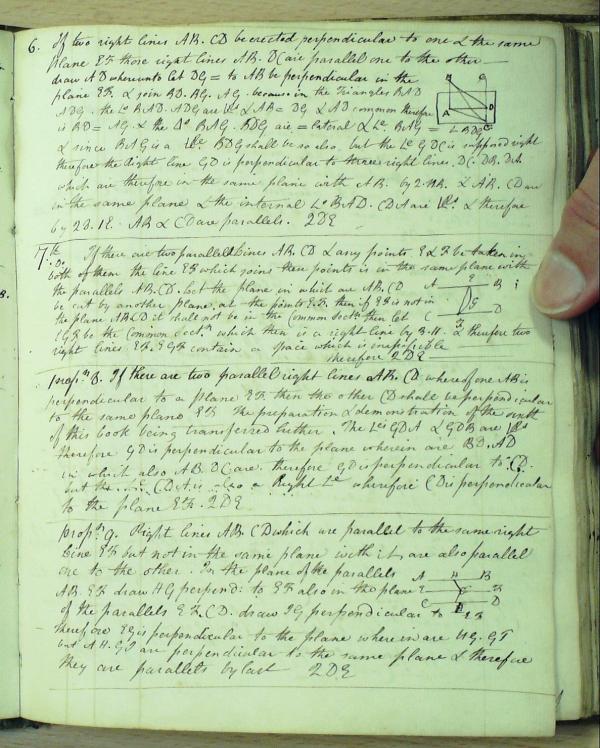 6. If two right lines AB. CD be erected perpendicular to one & the same
Plane EF those right lines AB. DC are parallel one to the other
draw AD whereunto let DG = to AB be perpendicular in the
plane EF. & join BD. BG. AG. because in the Triangles BAD
ADG. the Ls BAD. ADG are & AB = DG & AD common therefore
is BD = AG. & the Δs BAG. BDG are = lateral & Le. BAG = L BDG
& since BAG is a BDG shall be so also. but the Le GDC is supposed right
therefore the Right line GD is perpendicular to three right lines. DC. DB. DA
which are therefore in the same plane with AB. by 2. & AB. CD are
in the same plane & the internal Ls BAD. CDA are & therefore
by 28. 1E. AB & CD are parallels. 2DE
7th If there are two parallel lines AB. CD & any points E & F be taken in
both of them the line EF which joins these points is in the same plane with
the parallels AB. CD. let the plane in which are AB. CD
be cut by another plane, at the points E.F. then if EF is not in
the plane ABCD it shall not be in the common Sectn. then let
EGF be the Common Sectn. which then is a right line by 3.11. & therefore two
right lines EF. EGF contain a space which is impossible
therefore 2DE
A B
E
G
F
C D
propn. 8. If there are two parallel right lines AB. CD whereof one AB is
perpendicular to a plane EF then the other CD shall be perpendicular
to the same plane EF The preparation & demonstration of the sixth
of this book being transferred hither. The Les GDA & GDB are
therefore GD is perpendicular to the plane wherein are BD. AD
in which also AB. DC are. therefore GD is perpendicular to CD.
but the Le CDA is also a Right Le wherefore CD is perpendicular
to the plane EF. 2DE
propn. 9. Right lines AB. CD which are parallel to the same right
line EF but not in the same plane with it, are also parallel
one to the other. In the plane of the parallels
AB. EF draw HG perpend: to EF also in the plane
of the parallels EF. CD. draw IG perpendicular to EF
therefore EG is perpendicular to the plane wherein are HG. GI
but AH. GI are perpendicular to the same plane & therefore
they are parallels by last 2DE
A H B
E F
C D